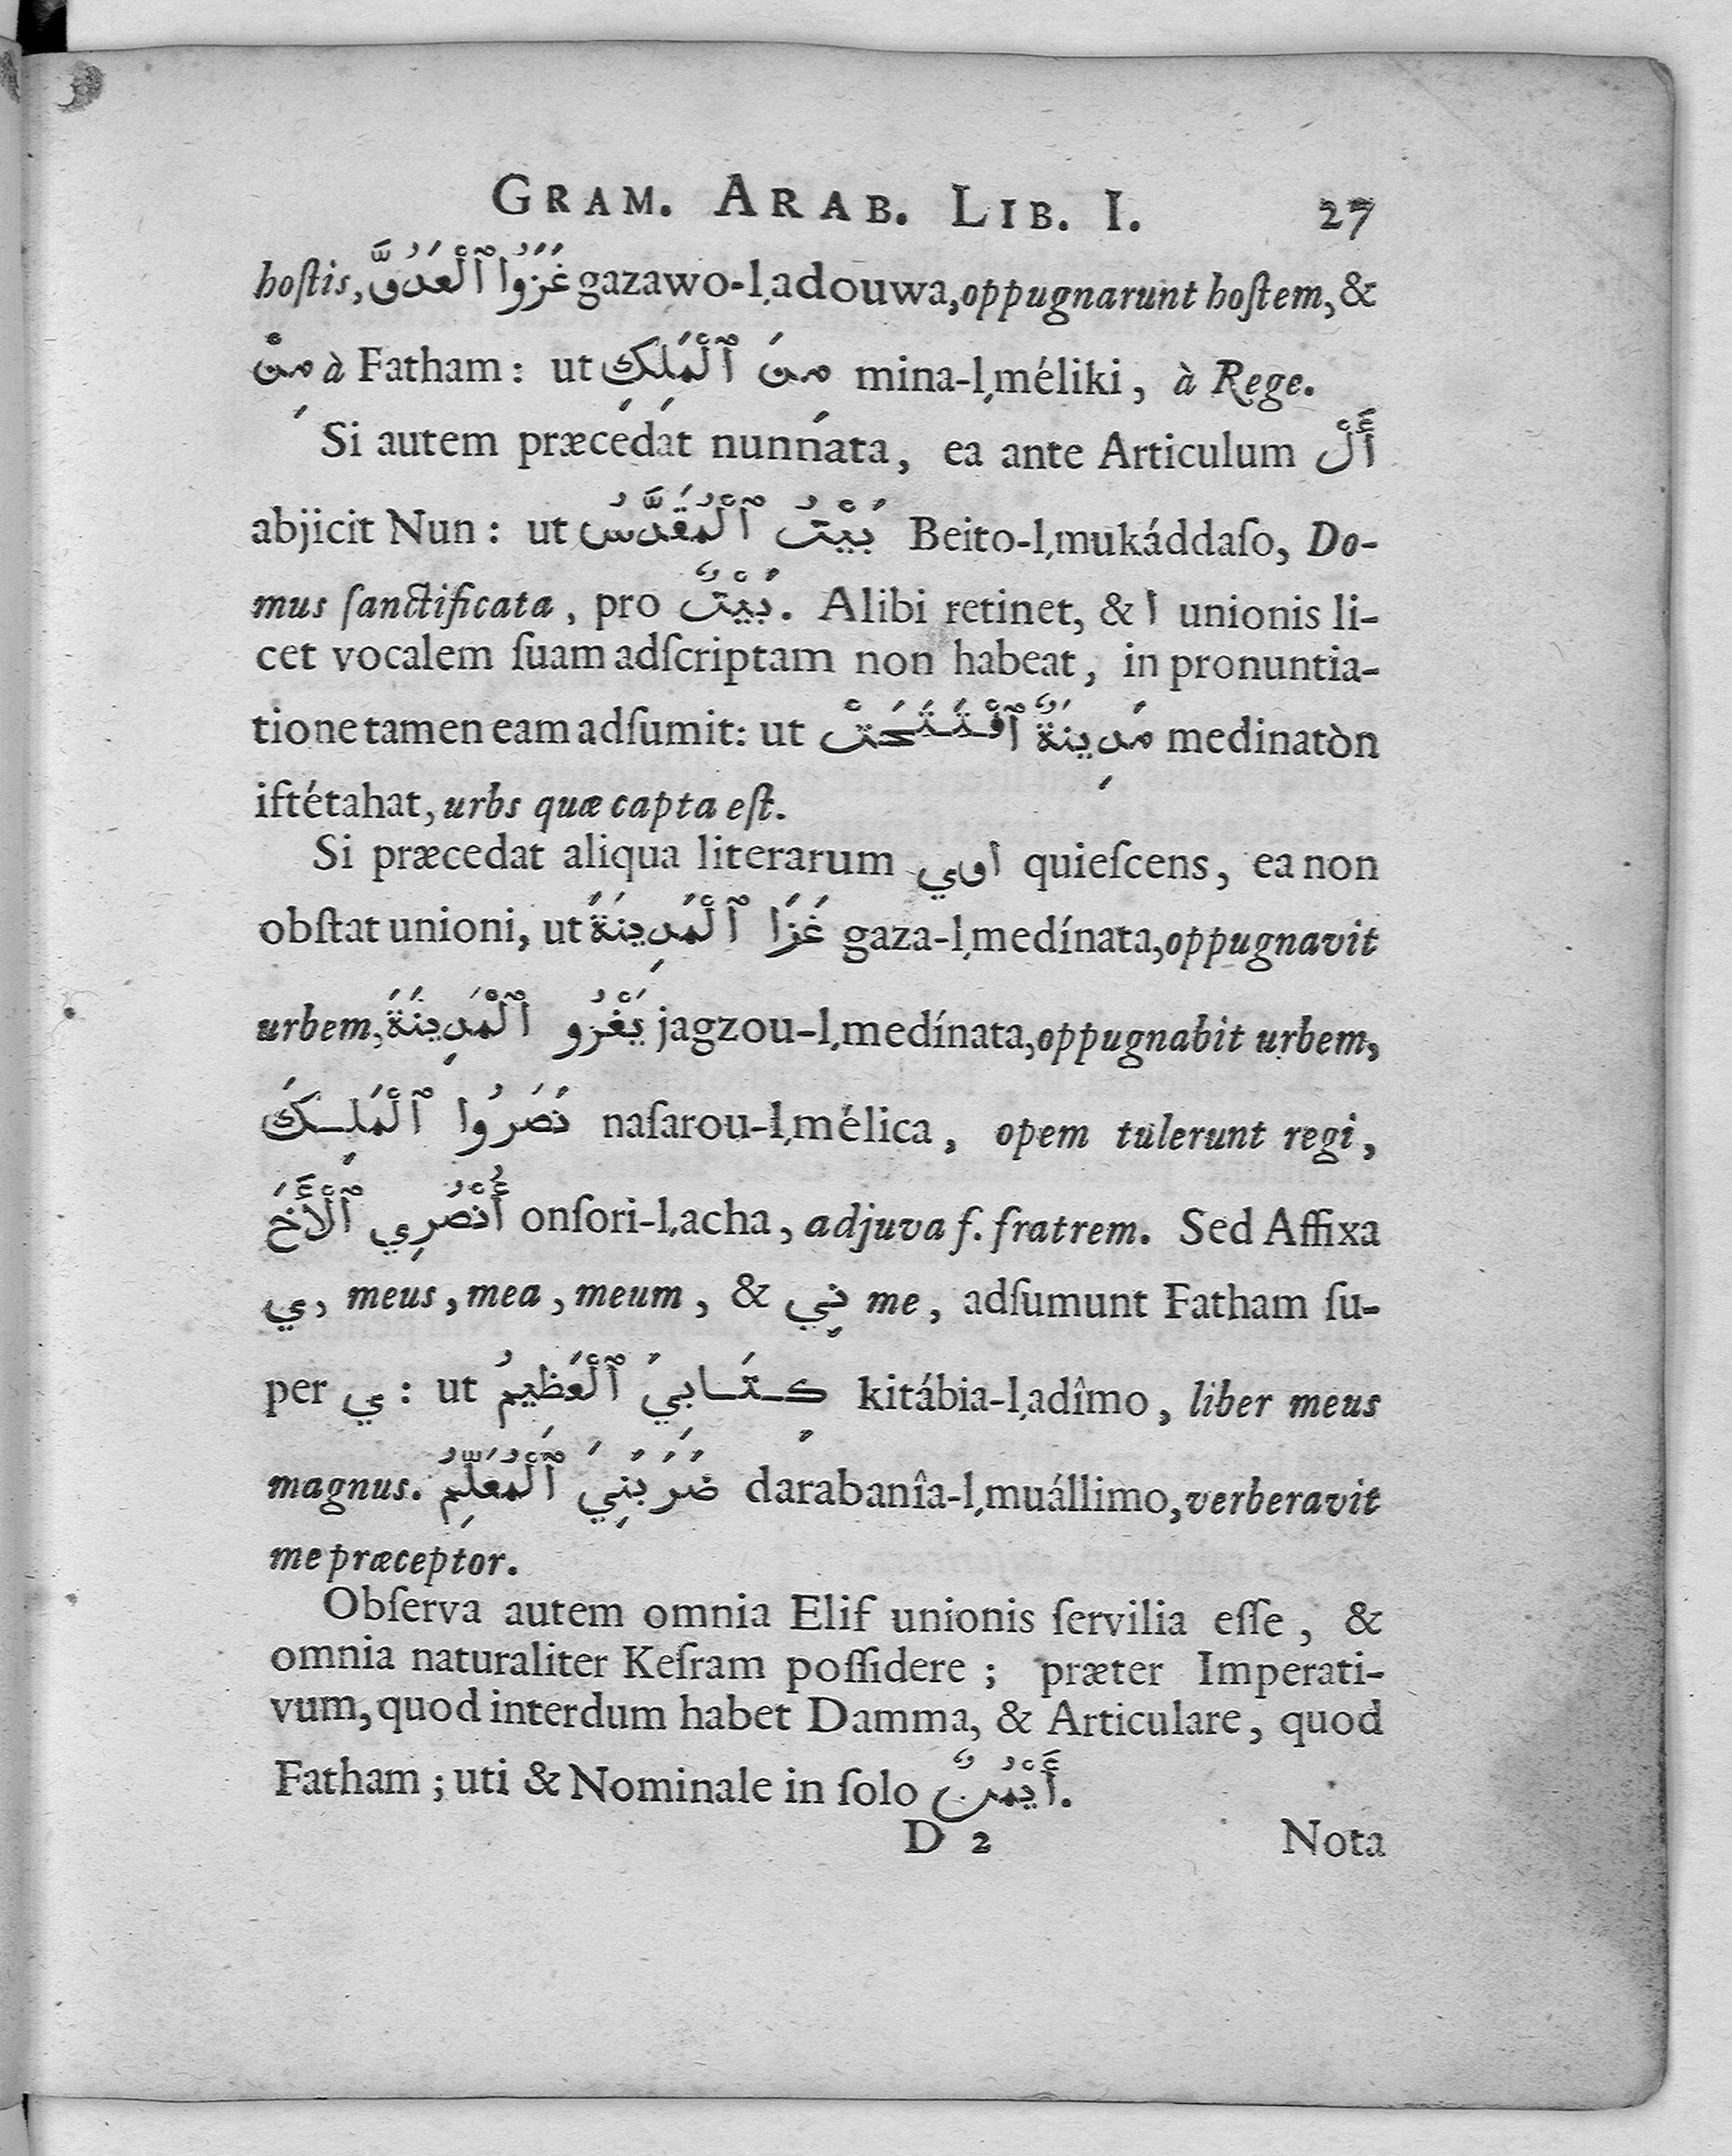 GRAM. ARAB. LIB. I. 27
hoſtis, غَزَوُا ٱلْعَدُوَّ gazawo-l,adouwa, oppugnarunt hoſtem, &
مِنْ à Fatham: ut مِنَ ٱلْمَلِكِ mina-l,méliki, à Rege.
Si autem præcedat nunnata, ea ante Articulum أَلْ
abjicit Nun: ut بَيْتُ ٱلْمُقَدَّسُ Beito-l,mukáddaſo, Do-
mus ſanctificata, pro بَيْتٌ. Alibi retinet, & ا unionis li-
cet vocalem ſuam adſcriptam non habeat, in pronuntia-
tione tamen eam adſumit: ut مَدِينَةٌ ٱفْتَتَحَتْ medinatòn
iftétahat, urbs quæ capta eſt.
Si præcedat aliqua literarum اوي quieſcens, ea non
obſtat unioni, ut غَزَا ٱلْمَدِينَةَ gaza-l,medínata, oppugnavit
urbem, يَغْزُو ٱلْمَدِينَةَ jagzou-l,medínata, oppugnabit urbem,
نَصَرُوا ٱلْمَلِكَ naſarou-l,mélica, opem tulerunt regi,
أُنْصُرِي ٱلْأَخَ onſori-l,acha, adjuva f. fratrem. Sed Affixa
ي, meus, mea, meum, & نِي me, adſumunt Fatham ſu-
per ي: ut كِتَابِيَ ٱلْعَظِيمُ kitábia-l,adîmo, liber meus
magnus. ضَرَبَنِيَ ٱلْمُعَلِّمُ darabanîa-l,muállimo, verberavit
me præceptor.
Obſerva autem omnia Elif unionis ſervilia eſſe, &
omnia naturaliter Keſram poſſidere; præter Imperati-
vum, quod interdum habet Damma, & Articulare, quod
Fatham; uti & Nominale in ſolo أَيْمُنٌ.
D 2 Nota